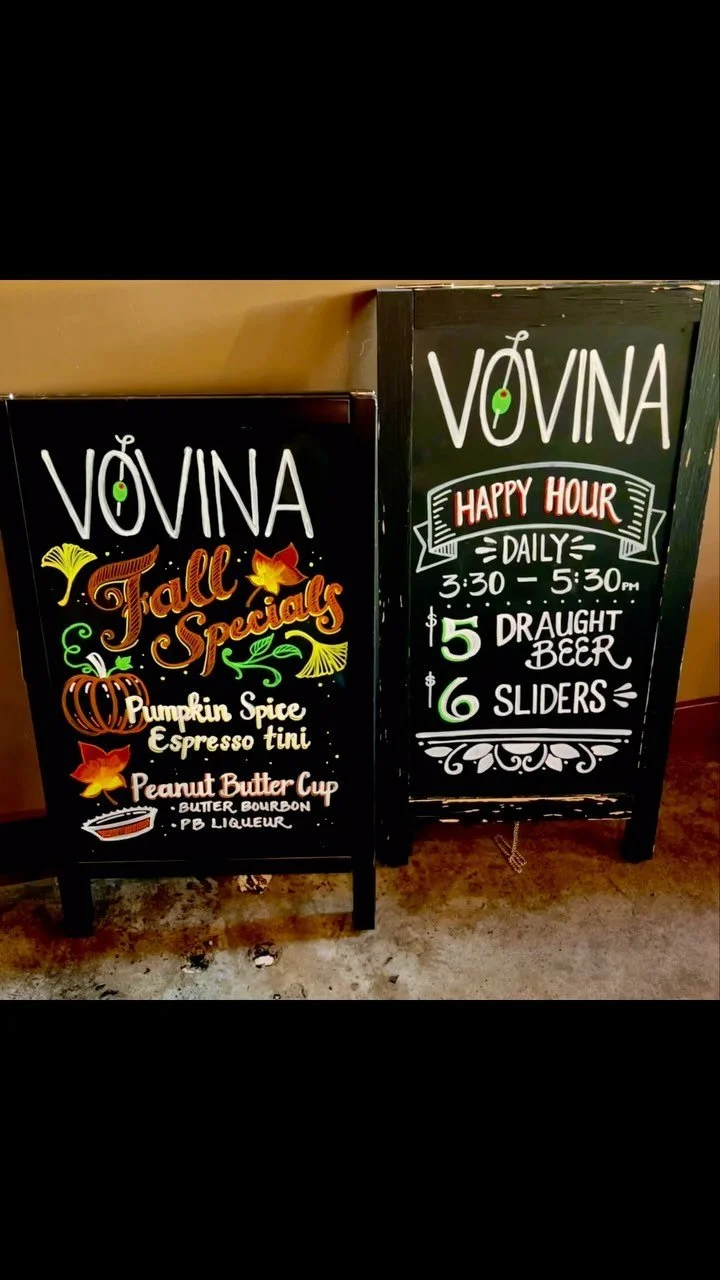 VOVINA
Fall
Specials
Pumpkin Spice
Espresso tini
Peanut Butter Cup
• BUTTER BOURBON
• PB LIQUEUR
VOVINA
HAPPY HOUR
DAILY
3:30 — 5:30PM
$5 DRAUGHT
BEER
$6 SLIDERS